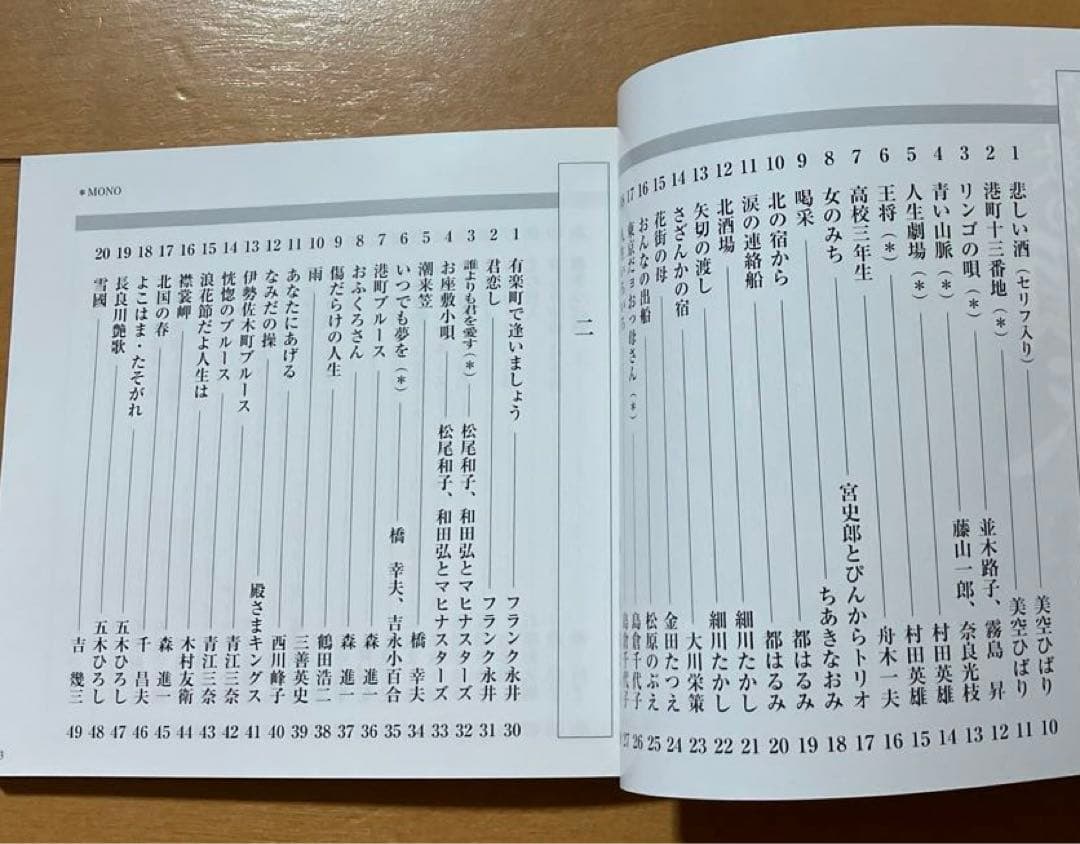 1 悲しい酒（セリフ入り） 美空ひばり 10
2 港町十三番地（＊） 美空ひばり 11
3 リンゴの唄（＊） 並木路子、霧島 昇 12
4 青い山脈（＊） 藤山一郎、奈良光枝 13
5 人生劇場（＊） 村田英雄 14
6 王将（＊） 村田英雄 15
7 高校三年生 舟木一夫 16
8 女のみち 宮史郎とぴんからトリオ 17
9 喝采 ちあきなおみ 18
10 北の宿から 都はるみ 19
11 涙の連絡船 都はるみ 20
12 北酒場 細川たかし 21
13 矢切の渡し 細川たかし 22
14 さざんかの宿 大川栄策 23
15 花街の母 金田たつえ 24
16 おんなの出船 松原のぶえ 25
17 東京だョおっ母さん（＊） 島倉千代子 26
27
二
1 有楽町で逢いましょう フランク永井 30
2 君恋し フランク永井 31
3 誰よりも君を愛す（＊） 松尾和子、和田弘とマヒナスターズ 32
4 お座敷小唄 松尾和子、和田弘とマヒナスターズ 33
5 潮来笠 橋 幸夫 34
6 いつでも夢を（＊） 橋 幸夫、吉永小百合 35
7 港町ブルース 森 進一 36
8 おふくろさん 森 進一 37
9 傷だらけの人生 鶴田浩二 38
10 雨 三善英史 39
11 あなたにあげる 西川峰子 40
12 なみだの操 殿さまキングス 41
13 伊勢佐木町ブルース 青江三奈 42
14 恍惚のブルース 青江三奈 43
15 浪花節だよ人生は 木村友衛 44
16 襟裳岬 森 進一 45
17 北国の春 千 昌夫 46
18 よこはま・たそがれ 五木ひろし 47
19 長良川艶歌 五木ひろし 48
20 雪國 吉 幾三 49
＊MONO
3